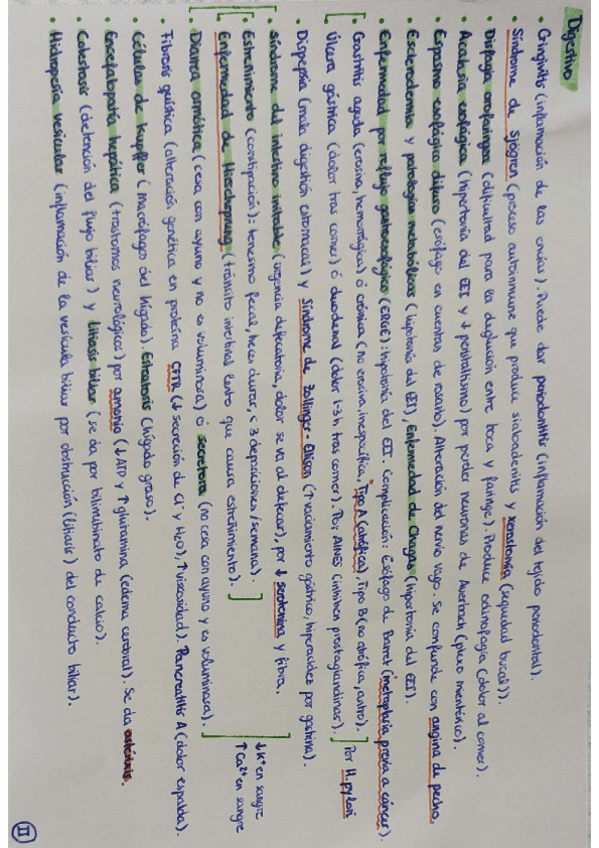 Digestivo
• Gingivitis (inflamación de las encías). Puede dar periodontitis (inflamación del tejido periodontal).
• Síndrome de Sjögren (proceso autoinmune que produce sialoadenitis y xerostomía (sequedad bucal)).
• Disfagia orofaríngea (dificultad para la deglución entre boca y faringe). Produce odinofagia (dolor al comer).
• Acalasia esofágica (hipertonía del EEI y ↓ peristaltismo) por perder neuronas de Auerbach (plexo mientérico).
• Espasmo esofágico difuso (esófago en cuentas de rosario). Alteración del nervio vago. Se confunde con angina de pecho.
• Esclerodermia y patologías metabólicas (hipotonía del EEI), Enfermedad de Chagas (hipertonía del EEI).
• Enfermedad por reflujo gastroesofágico (ERGE): hipotonía del EEI. Complicación: Esófago de Barret (metaplasia previa a cáncer).
• Gastritis aguda (erosiva, hemorrágica) ó crónica (no erosiva, inespecífica, Tipo A (atrófica), Tipo B (no atrófica, antro).
Úlcera gástrica (dolor tras comer) ó duodenal (dolor 1-3h tras comer). Por AINES (inhiben prostaglandinas).
Por H. pylori
• Dispepsia (mala digestión estomacal) y Síndrome de Zollinger-Ellison (↑ vaciamiento gástrico, hiperacidez por gastrina).
• Síndrome del intestino irritable (urgencia defecatoria, dolor se va al defecar), por ↓ serotonina y fibra.
• Estreñimiento (constipación): tenesmo fecal, heces duras, < 3 deposiciones/semana).
Enfermedad de Hirschsprung (tránsito intestinal lento que causa estreñimiento).
↓ K⁺ en sangre
↑ Ca²⁺ en sangre
• Diarrea osmótica (cesa con ayuno y no es voluminosa) ó secretora (no cesa con ayuno y es voluminosa).
• Fibrosis quística (alteración genética en proteína CFTR (↓ secreción de Cl⁻ y H₂O), ↑ viscosidad). Pancreatitis A (dolor espalda).
• Células de Kupffer (macrófagos del hígado). Esteatosis (hígado graso).
• Encefalopatía hepática (trastornos neurológicos) por amonio (↓ ATP y ↑ glutamina (edema cerebral). Se da asterixis.
• Colestasis (detención del flujo biliar) y Litiasis biliar (se da por bilirrubinato de calcio).
• Hidropesía vesicular (inflamación de la vesícula biliar por obstrucción (litiasis) del conducto biliar).
II